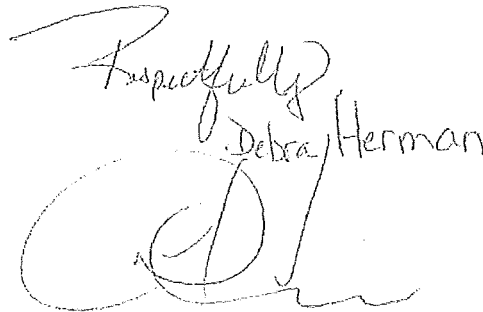 Respectfully,
Debra Herman